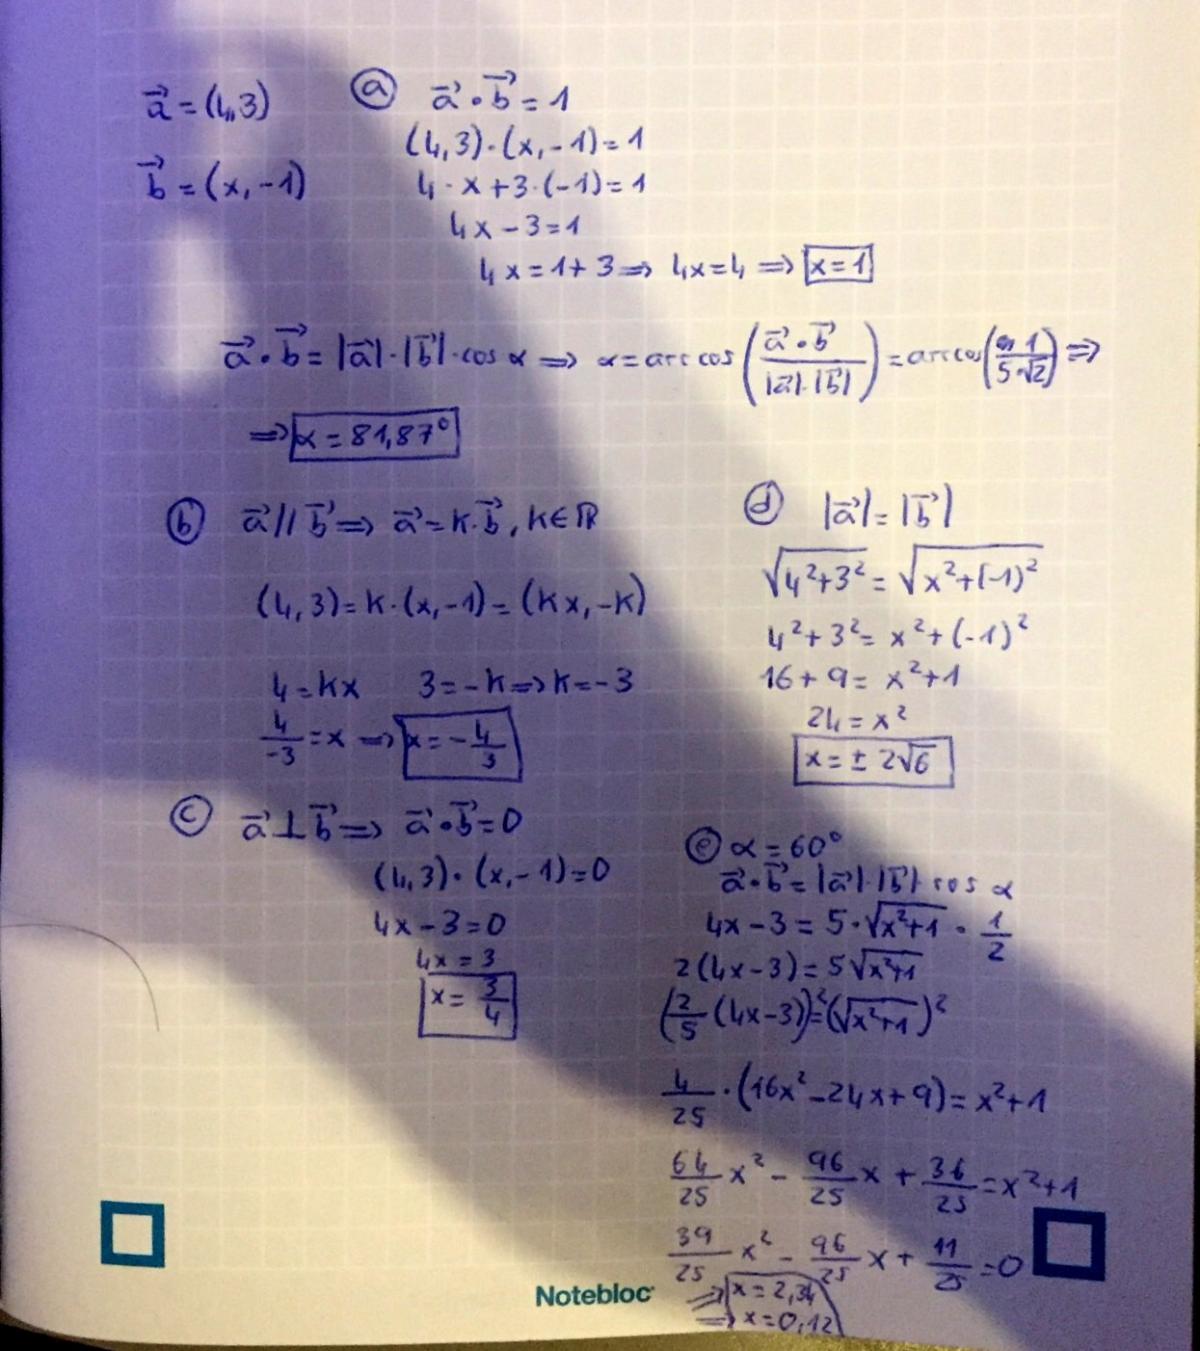 a⃗ = (4,3)
b⃗ = (x,-1)
ⓐ a⃗ · b⃗ = 1
(4,3)·(x,-1)=1
4·x+3·(-1)=1
4x-3=1
4x=1+3 ⇒ 4x=4 ⇒ x=1
a⃗ · b⃗ = |a⃗|·|b⃗|·cos α ⇒ α = arc cos (a⃗ · b⃗ / |a⃗|·|b⃗|) = arc cos (1 / 5·√2) ⇒
⇒ α = 81,87°
ⓑ a⃗ // b⃗ ⇒ a⃗ = k·b⃗, k∈ℝ
(4,3)=k·(x,-1)=(kx,-k)
4=kx 3=-k ⇒ k=-3
4/-3 = x ⇒ x = -4/3
ⓒ a⃗ ⊥ b⃗ ⇒ a⃗ · b⃗ = 0
(4,3)·(x,-1)=0
4x-3=0
4x=3
x = 3/4
ⓓ |a⃗| = |b⃗|
√(4²+3²) = √(x²+(-1)²)
4²+3²= x²+(-1)²
16+9= x²+1
24 = x²
x = ± 2√6
ⓔ α = 60°
a⃗ · b⃗ = |a⃗|·|b⃗|·cos α
4x-3 = 5·√(x²+1) · 1/2
2(4x-3) = 5√(x²+1)
(2/5 (4x-3))² = (√(x²+1))²
4/25 · (16x²-24x+9) = x²+1
64/25 x² - 96/25 x + 36/25 = x²+1
39/25 x² - 96/25 x + 11/25 = 0
⇒ x = 2,34
⇒ x = 0,12
Notebloc